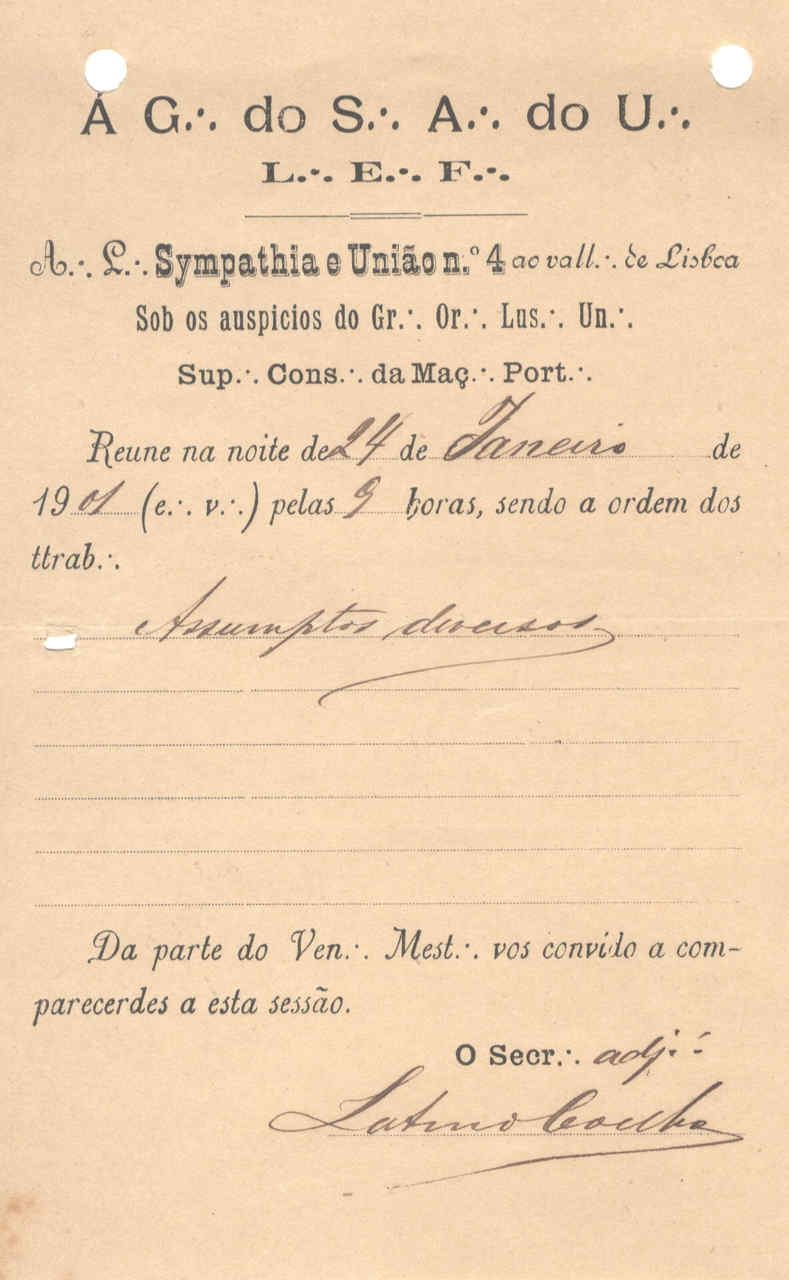 Á G.·. do S.·. A.·. do U.·.
L.·. E.·. F.·.
A.·. L.·. Sympathia e União n.º 4 ao vall.·. de Lisboa
Sob os auspicios do Gr.·. Or.·. Lus.·. Un.·.
Sup.·. Cons.·. da Maç.·. Port.·.
Reune na noite de 24 de Janeiro de
1901 (e.·. v.·.) pelas 9 horas, sendo a ordem dos
ttrab.·.
Assumptos diversos
Da parte do Ven.·. Mest.·. vos convido a com-
parecerdes a esta sessão.
O Secr.·. adj.·.
Latino Coelho